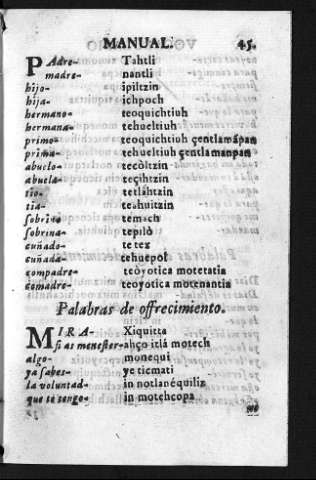 MANUAL. 45.
PAdre- Tahtli
madre- nantli
hijo- ipiltzin
hija- ichpoch
hermano- teoquichtiuh
hermana- tehueltiuh
primo- teoquichtiuh çentlamãpan
prima- tehueltiuh çentlamanpan
abuelo- tecòltzin
abuela- teçihtzin
tio- tetlàhtzin
tia- teahuitzin
sobrino temach
sobrina- tepilò
cuñado- te tex
cuñada- tehuepol
compadre- teòyotica motetatia
comadre- teoyotica motenantia
Palabras de offrecimiento.
MIRA- Xiquitta
si as menester- ahço itlá motech
algo- monequi
ya sabes- ye ticmati
la voluntad- in notlanéquiliz
que te tengo- in motchcopa